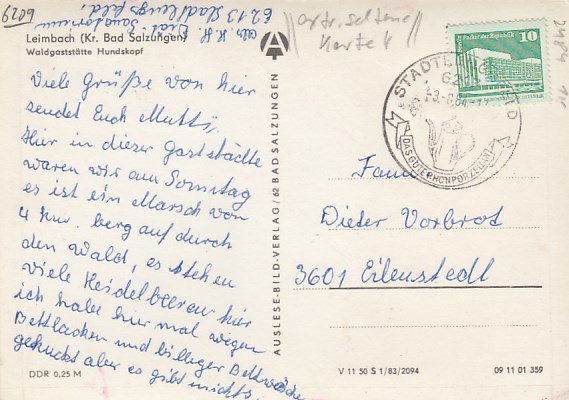 6029
Abs. K. H. Graf Sanatorium
6213 Stadtlengsfeld!
Leimbach (Kr. Bad Salzungen)
Waldgaststätte Hundskopf
Viele Grüße von hier
sendet Euch Mutti,
Hier in dieser Gaststätte
waren wir am Sonntag
es ist ein Marsch von
4 Km. berg auf durch
den Wald, es stehen
viele Heidelbeeren hier
ich habe hier mal wegen
Bettlacken und billiger Bettwäsche
gekuckt aber es gibt nichts.
DDR 0,25 M
AUSLESE-BILD-VERLAG / 62 BAD SALZUNGEN
A
artr. seltene
Karte!
2484
Palast der Republik
10
STADTLENGSFELD
62
DAS GUTE RHÖNPORZELLAN
Fam
Dieter Vorbrot
3601 Eilenstedt
V 11 50 S 1/83/2094
09 11 01 359